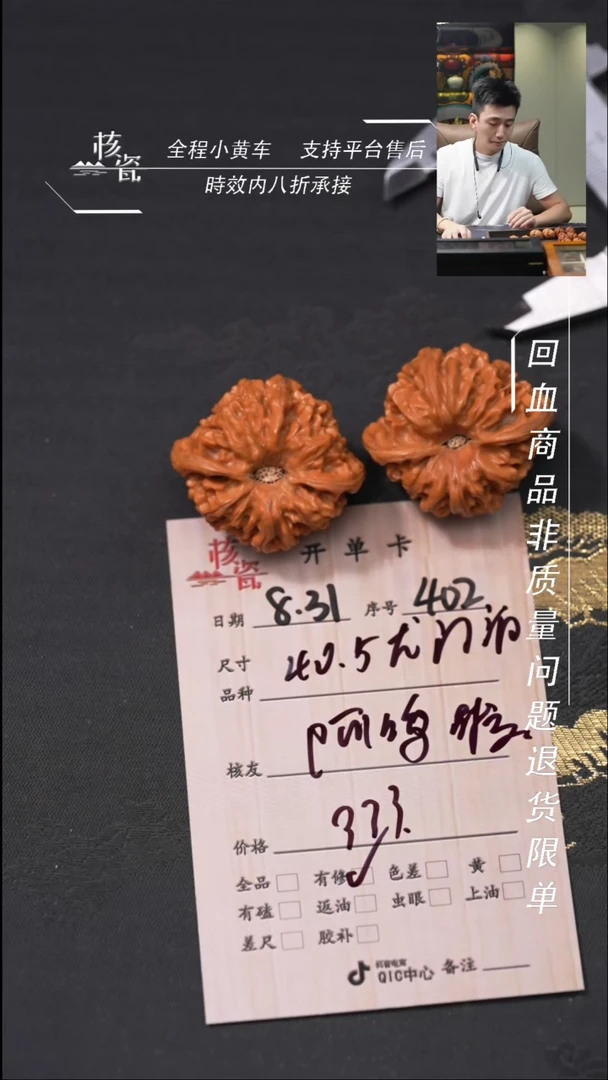 核瓷
全程小黄车 支持平台售后
時效内八折承接
回血商品非质量问题退货限单
核瓷 开单卡
日期 8.31 序号 402
尺寸 40.5
品种
核友 阿鸣
价格 333.
全品 有修 色差 黄
有磕 返油 虫眼 上油
差尺 胶补
抖音电商
QIC中心 备注